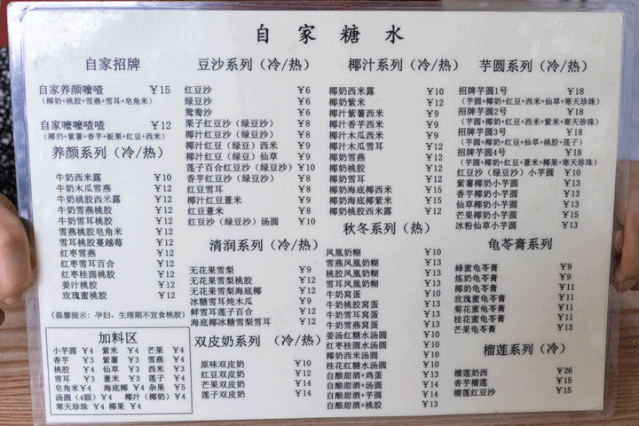 自家糖水
自家招牌
自家养颜嚓喳 ¥15
(椰奶+桃胶+雪燕+雪耳+皂角米)
自家嚓嚓喳 ¥12
(椰奶+紫薯+香芋+板栗+红豆+西米)
养颜系列(冷/热)
牛奶西米露 ¥10
牛奶木瓜雪燕 ¥12
牛奶桃胶西米露 ¥12
牛奶雪燕桃胶 ¥12
牛奶雪耳桃胶 ¥12
雪燕桃胶皂角米 ¥12
雪耳桃胶蔓越莓 ¥12
红枣雪燕 ¥12
红枣雪耳百合 ¥12
红枣桂圆桃胶 ¥12
姜汁桃胶 ¥12
玫瑰蜜桃胶 ¥12
(温馨提示:孕妇、生理期不宜食桃胶)
加料区
小芋圆 ¥4 紫米 ¥4 芒果 ¥4
香芋 ¥3 紫薯 ¥3 雪燕 ¥4
桃胶 ¥4 仙草 ¥3 西米 ¥3
雪耳 ¥3 薏米 ¥3 莲子 ¥4
皂角米 ¥4 海底椰 ¥4 杂果 ¥5
汤圆(4颗) ¥4 椰汁(椰奶) ¥4
寒天珍珠 ¥4 椰果 ¥4
豆沙系列(冷/热)
红豆沙 ¥6
绿豆沙 ¥6
鸳鸯沙 ¥6
栗子红豆沙(绿豆沙) ¥8
椰汁红豆沙(绿豆沙) ¥8
椰汁红豆(绿豆)西米 ¥9
椰汁红豆(绿豆)仙草 ¥9
莲子百合红豆沙(绿豆沙) ¥10
香芋红豆沙(绿豆沙) ¥8
红豆雪耳 ¥8
椰汁红豆薏米 ¥9
红豆薏米 ¥8
红豆沙(绿豆沙)汤圆 ¥10
清润系列(冷/热)
无花果雪梨 ¥9
无花果雪梨桃胶 ¥12
无花果雪梨海底椰 ¥12
冰糖雪耳炖木瓜 ¥9
鲜雪耳莲子百合 ¥12
海底椰冰糖雪梨雪耳 ¥12
双皮奶系列(冷/热)
原味双皮奶 ¥10
红豆双皮奶 ¥12
芒果双皮奶 ¥14
莲子双皮奶 ¥12
椰汁系列(冷/热)
椰奶西米露 ¥10
椰奶紫米 ¥12
椰汁紫薯西米 ¥12
椰汁香芋西米 ¥12
椰汁木瓜西米 ¥12
椰汁木瓜雪耳 ¥12
椰奶雪燕 ¥12
椰奶桃胶 ¥12
椰奶雪耳 ¥12
椰奶海底椰西米 ¥15
椰奶海底椰紫米 ¥15
椰奶桃胶西米露 ¥12
秋冬系列(热)
凤凰奶糊 ¥10
雪燕凤凰奶糊 ¥13
桃胶凤凰奶糊 ¥13
雪耳凤凰奶糊 ¥13
牛奶窝蛋 ¥10
牛奶桃胶窝蛋 ¥13
牛奶雪耳窝蛋 ¥13
牛奶雪燕窝蛋 ¥13
姜汤红糖水汤圆 ¥10
红枣桂圆水汤圆 ¥10
椰奶西米汤圆 ¥10
桂花红糖水汤圆 ¥10
自酿甜酒+鸡蛋 ¥13
自酿甜酒+汤圆 ¥13
自酿甜酒+芋圆 ¥13
自酿甜酒+桃胶 ¥13
芋圆系列(冷/热)
招牌芋圆1号 ¥18
(芋圆+椰奶+红豆+西米+仙草+寒天珍珠)
招牌芋圆2号 ¥18
招牌芋圆3号 ¥18
(芋圆+椰奶+红豆+仙草+桃胶+莲子)
招牌芋圆4号 ¥18
(芋圆+椰奶+红豆+薏米+椰果+寒天珍珠)
红豆沙(绿豆沙)小芋圆 ¥10
紫薯椰奶小芋圆 ¥13
香芋椰奶小芋圆 ¥13
仙草椰奶小芋圆 ¥11
芒果椰奶小芋圆 ¥15
冰粉仙草小芋圆 ¥13
龟苓膏系列
蜂蜜龟苓膏 ¥9
炼奶龟苓膏 ¥9
椰奶龟苓膏 ¥11
玫瑰蜜龟苓膏 ¥11
菊花蜜龟苓膏 ¥11
桂花蜜龟苓膏 ¥11
芒果龟苓膏 ¥13
榴莲系列(冷)
榴莲奶西 ¥26
香芋榴莲 ¥15
榴莲红豆沙 ¥15